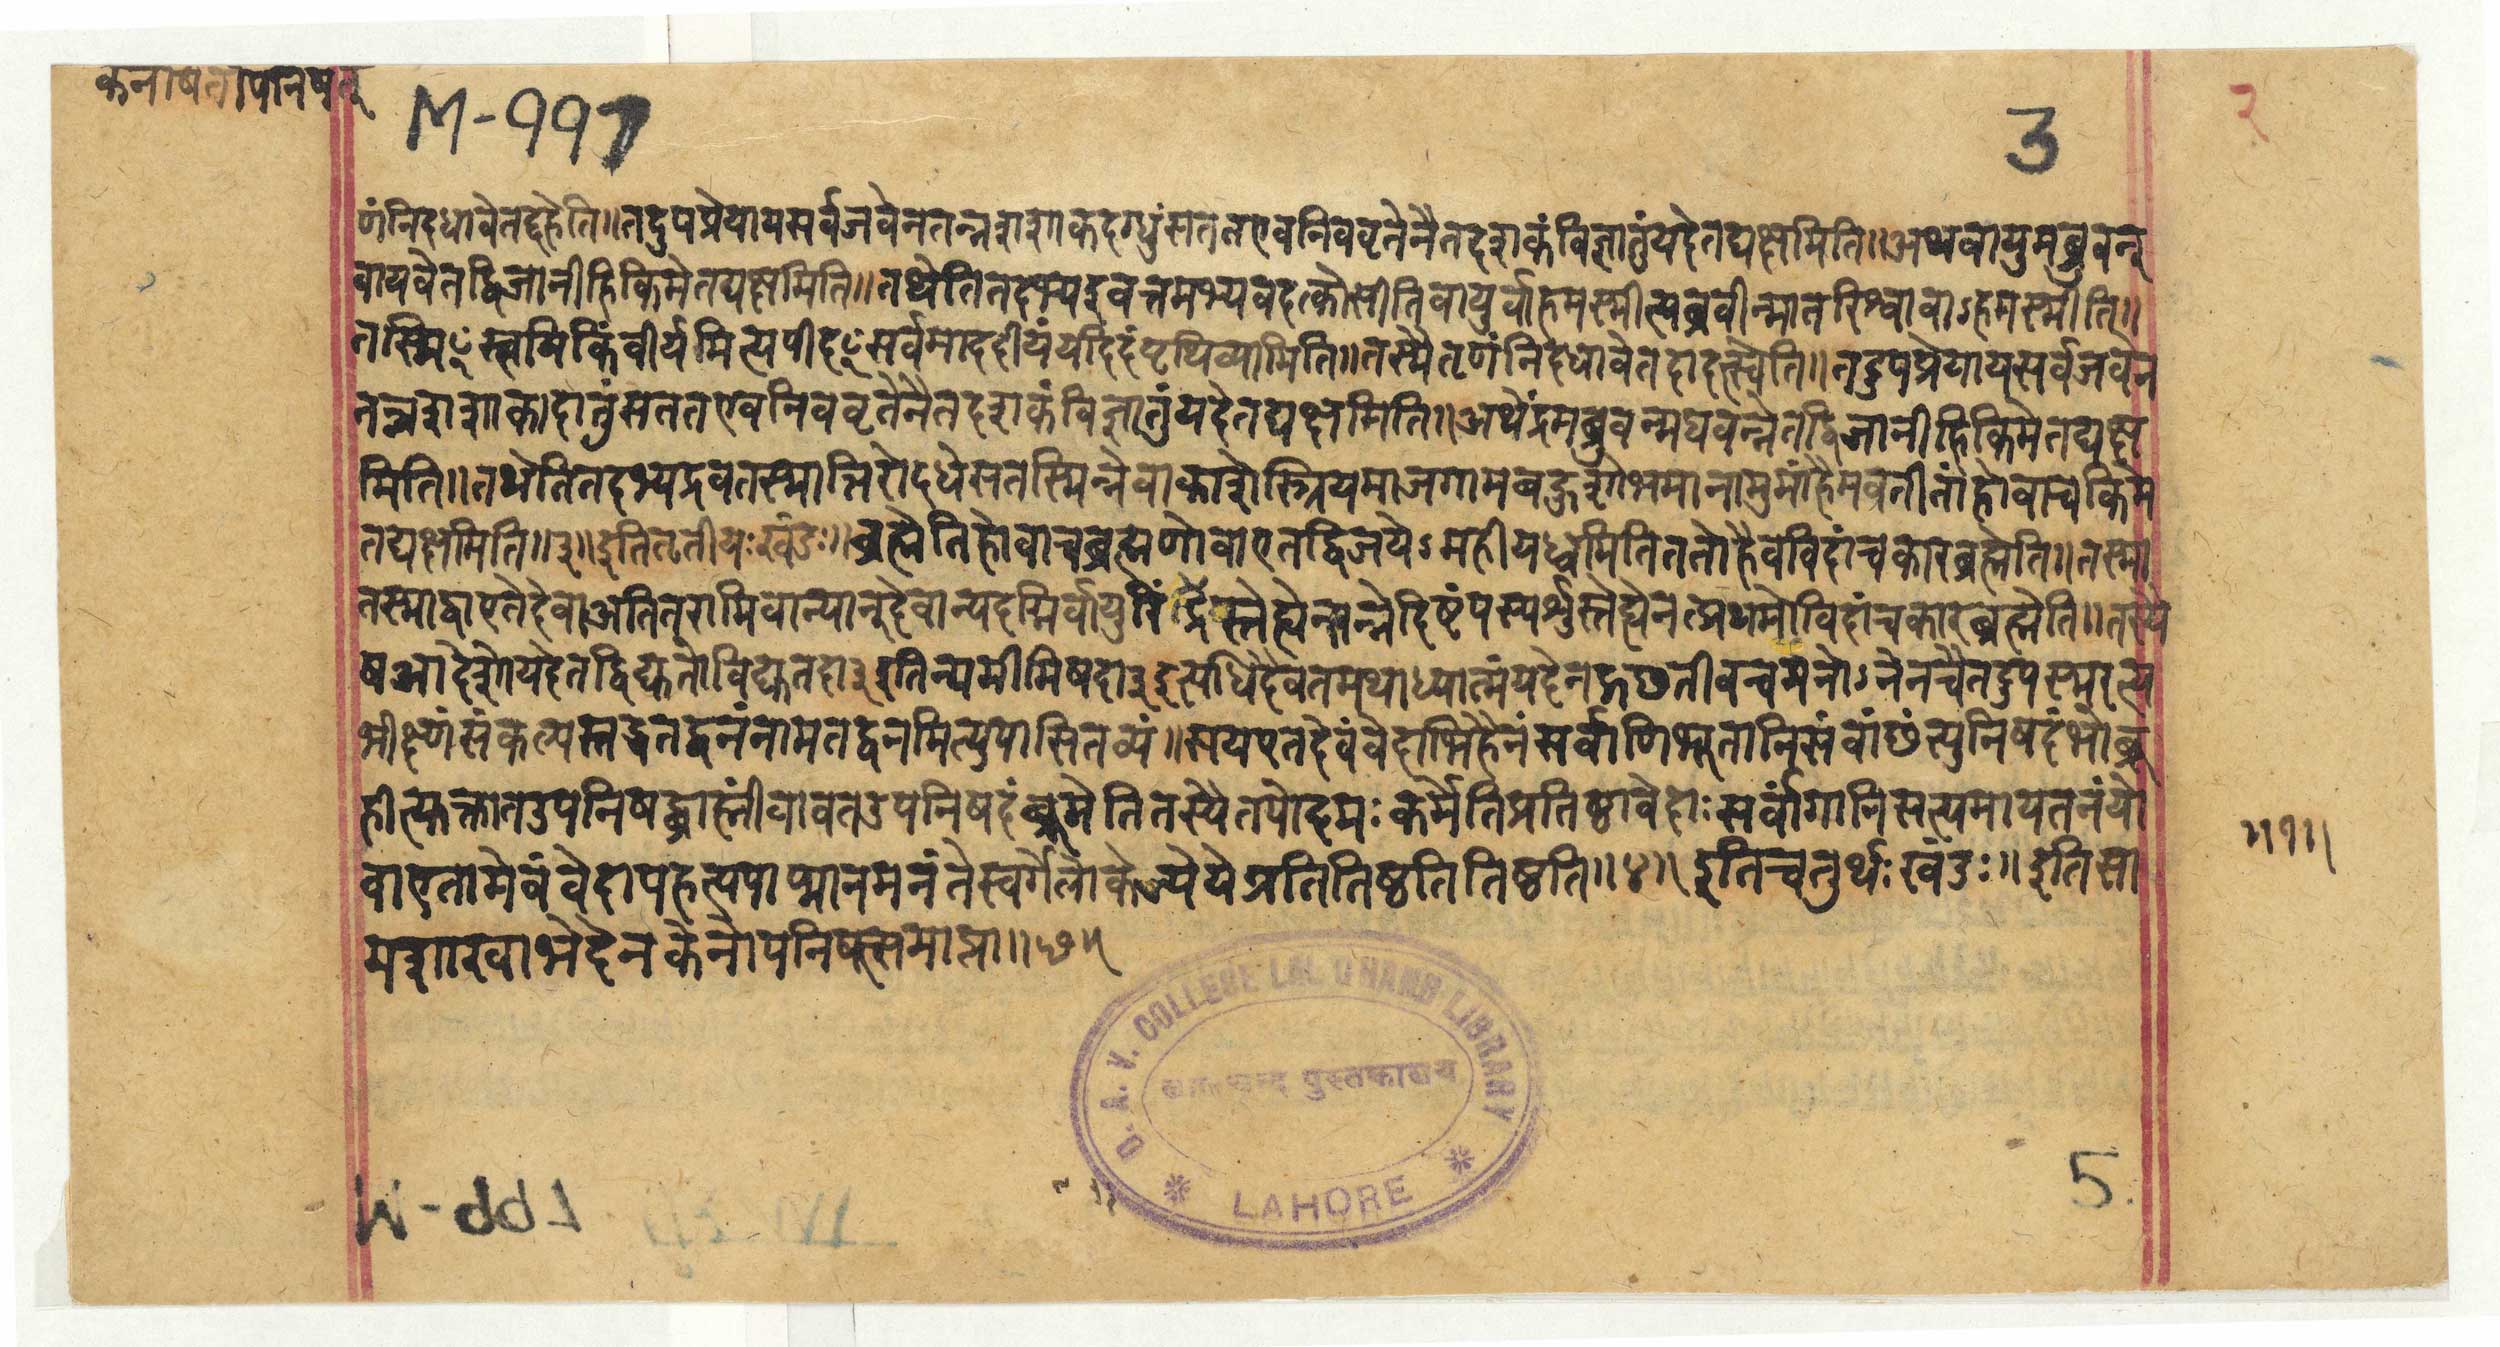 केनाषतोपनिषत्
M-997
3
२
णंनिदधावेतद्दहेति॥तदुपप्रेयायसर्वजवेनतन्नशशाकदग्धुंसततएवनिववृतेनैतदशकंविज्ञातुंयदेतद्यक्षमिति॥अथवायुमब्रुवन्
वायवेतद्विजानीहिकिमेतद्यक्षमिति॥तथेतितदभ्यद्रवत्तमभ्यवदत्कोसीतिवायुर्वाहमस्मीत्यब्रवीन्मातरिश्वावाऽहमस्मीति॥
तस्मिꣳस्त्वयिकिंवीर्यमित्यपीदꣳसर्वमाददीयंयदिदंपृथिव्यामिति॥तस्मैतृणंनिदधावेतदादत्स्वेति॥तदुपप्रेयायसर्वजवेन
तन्नशशाकादातुंसततएवनिववृतेनैतदशकंविज्ञातुंयदेतद्यक्षमिति॥अथेंद्रमब्रुवन्मघवन्नेतद्विजानीहिकिमेतद्यक्ष
मिति॥तथेतितदभ्यद्रवतस्मात्तिरोदधेसतस्मिन्नेवाकाशेस्त्रियमाजगामबहुशोभमानामुमांहैमवतींतांहोवाचकिमे
तद्यक्षमिति॥३॥इतितृतीयःखंडः॥ब्रह्मेतिहोवाचब्रह्मणोवाएतद्विजयेऽमहीयध्वमितिततोहैवविदांचकारब्रह्मेति॥तस्मा
तस्माद्वाएतेदेवाअतितरामिवान्यान्देवान्यदग्निर्वायुरिंद्रस्तेह्येनन्नेदिष्टंपस्पर्शुस्तेह्येनत्प्रथमोविदांचकारब्रह्मेति॥तस्ये
षआदेशोयदेतद्विद्युतोविद्युतदा३इतिन्यमीमिषदा३इत्यधिदैवतमथाध्यात्मंयदेनद्गछतीवचमनोऽनेनचैतदुपस्मरत्य
भीक्ष्णंसंकल्पस्तद्धतद्वनंनामतद्वनमित्युपासितव्यं॥सयएतदेवंवेदाभिहैनंसर्वाणिभूतानिसंवांछंत्युनिषदंभोब्रू
हीत्युक्तातउपनिषद्ब्राह्मींवावतउपनिषदंब्रूमेतितस्यैतपोदमःकर्मेतिप्रतिष्ठावेदाःसर्वांगानिसत्यमायतनंयो
वाएतामेवंवेदापहत्यपाप्मानमनंतेस्वर्गेलोकेज्येयेप्रतितिष्ठतितिष्ठति॥४॥इतिचतुर्थःखंडः॥इतिसा
मशाखाभेदेनकेनोपनिषत्समाप्ता॥छ॥
॥१॥
D.A.V. COLLEGE LAL CHAND LIBRARY
लालचन्द पुस्तकालय
* LAHORE *
5.
M-997